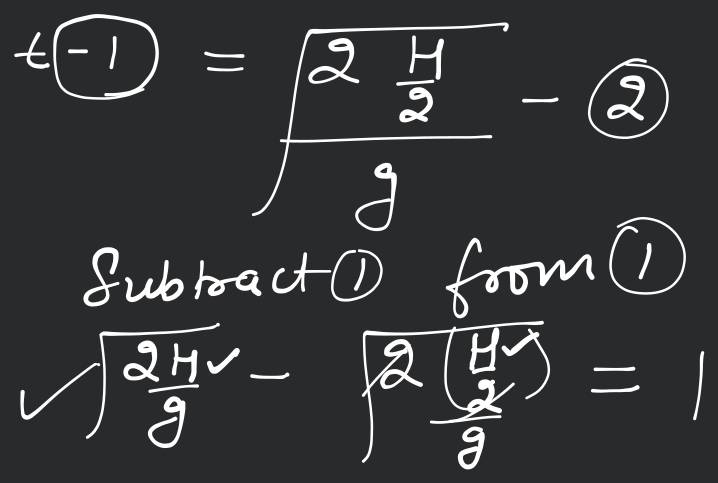 t - 1 = √(2 H/2 / g) - ②
Subtract ① from ①
✓ √(2H✓/g) - √(2 (H✓/2) / g) = 1